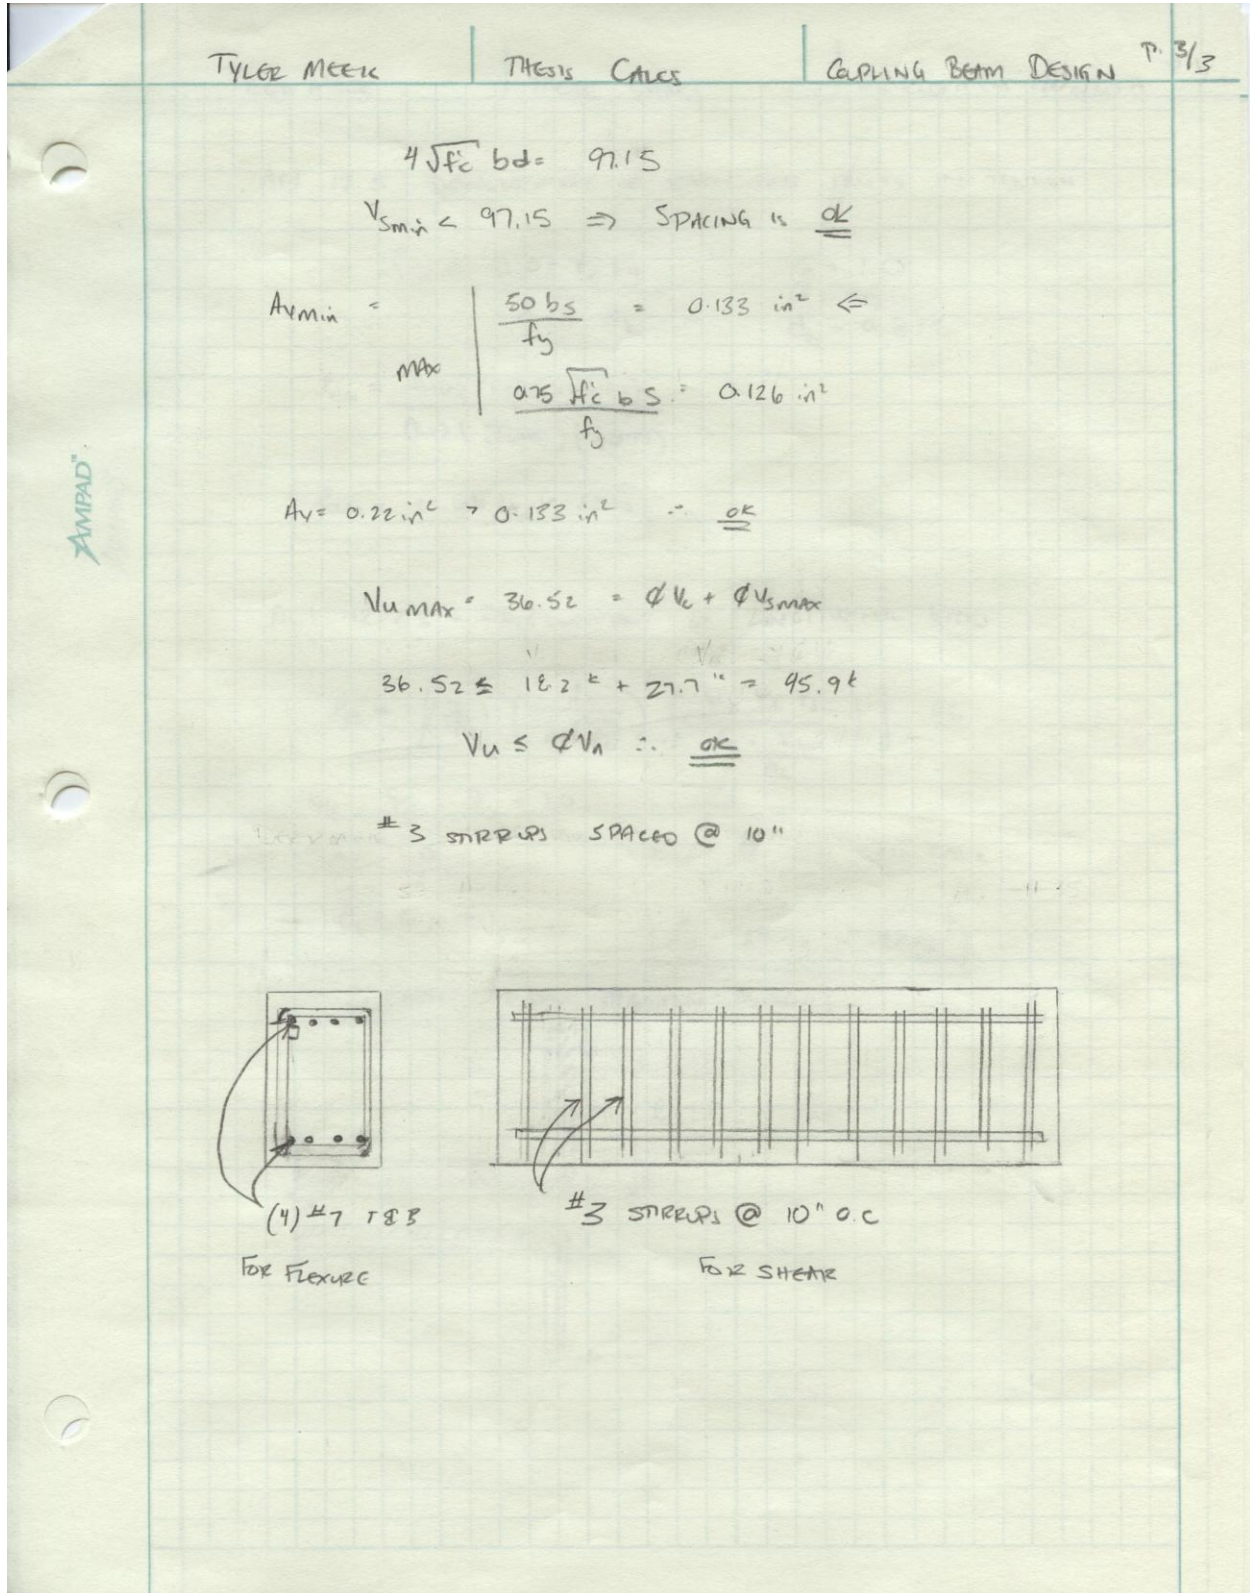 TYLER MEEK THESIS CALCS COUPLING BEAM DESIGN P. 3/3
4√f'c bd = 97.15
Vsmin < 97.15 ⇒ SPACING IS OK
Avmin = MAX | 50 bs / fy = 0.133 in² ⇐
0.75 √f'c b s / fy = 0.126 in²
AMPAD™
Av = 0.22 in² > 0.133 in² ∴ OK
Vu MAX = 36.52 = ϕVc + ϕVsMAX
36.52 ≤ 18.2 k + 27.7 k = 45.9 k
Vu ≤ ϕVn ∴ OK
#3 STIRRUPS SPACED @ 10"
(4) #7 T&B
#3 STIRRUPS @ 10" O.C
FOR FLEXURE
FOR SHEAR